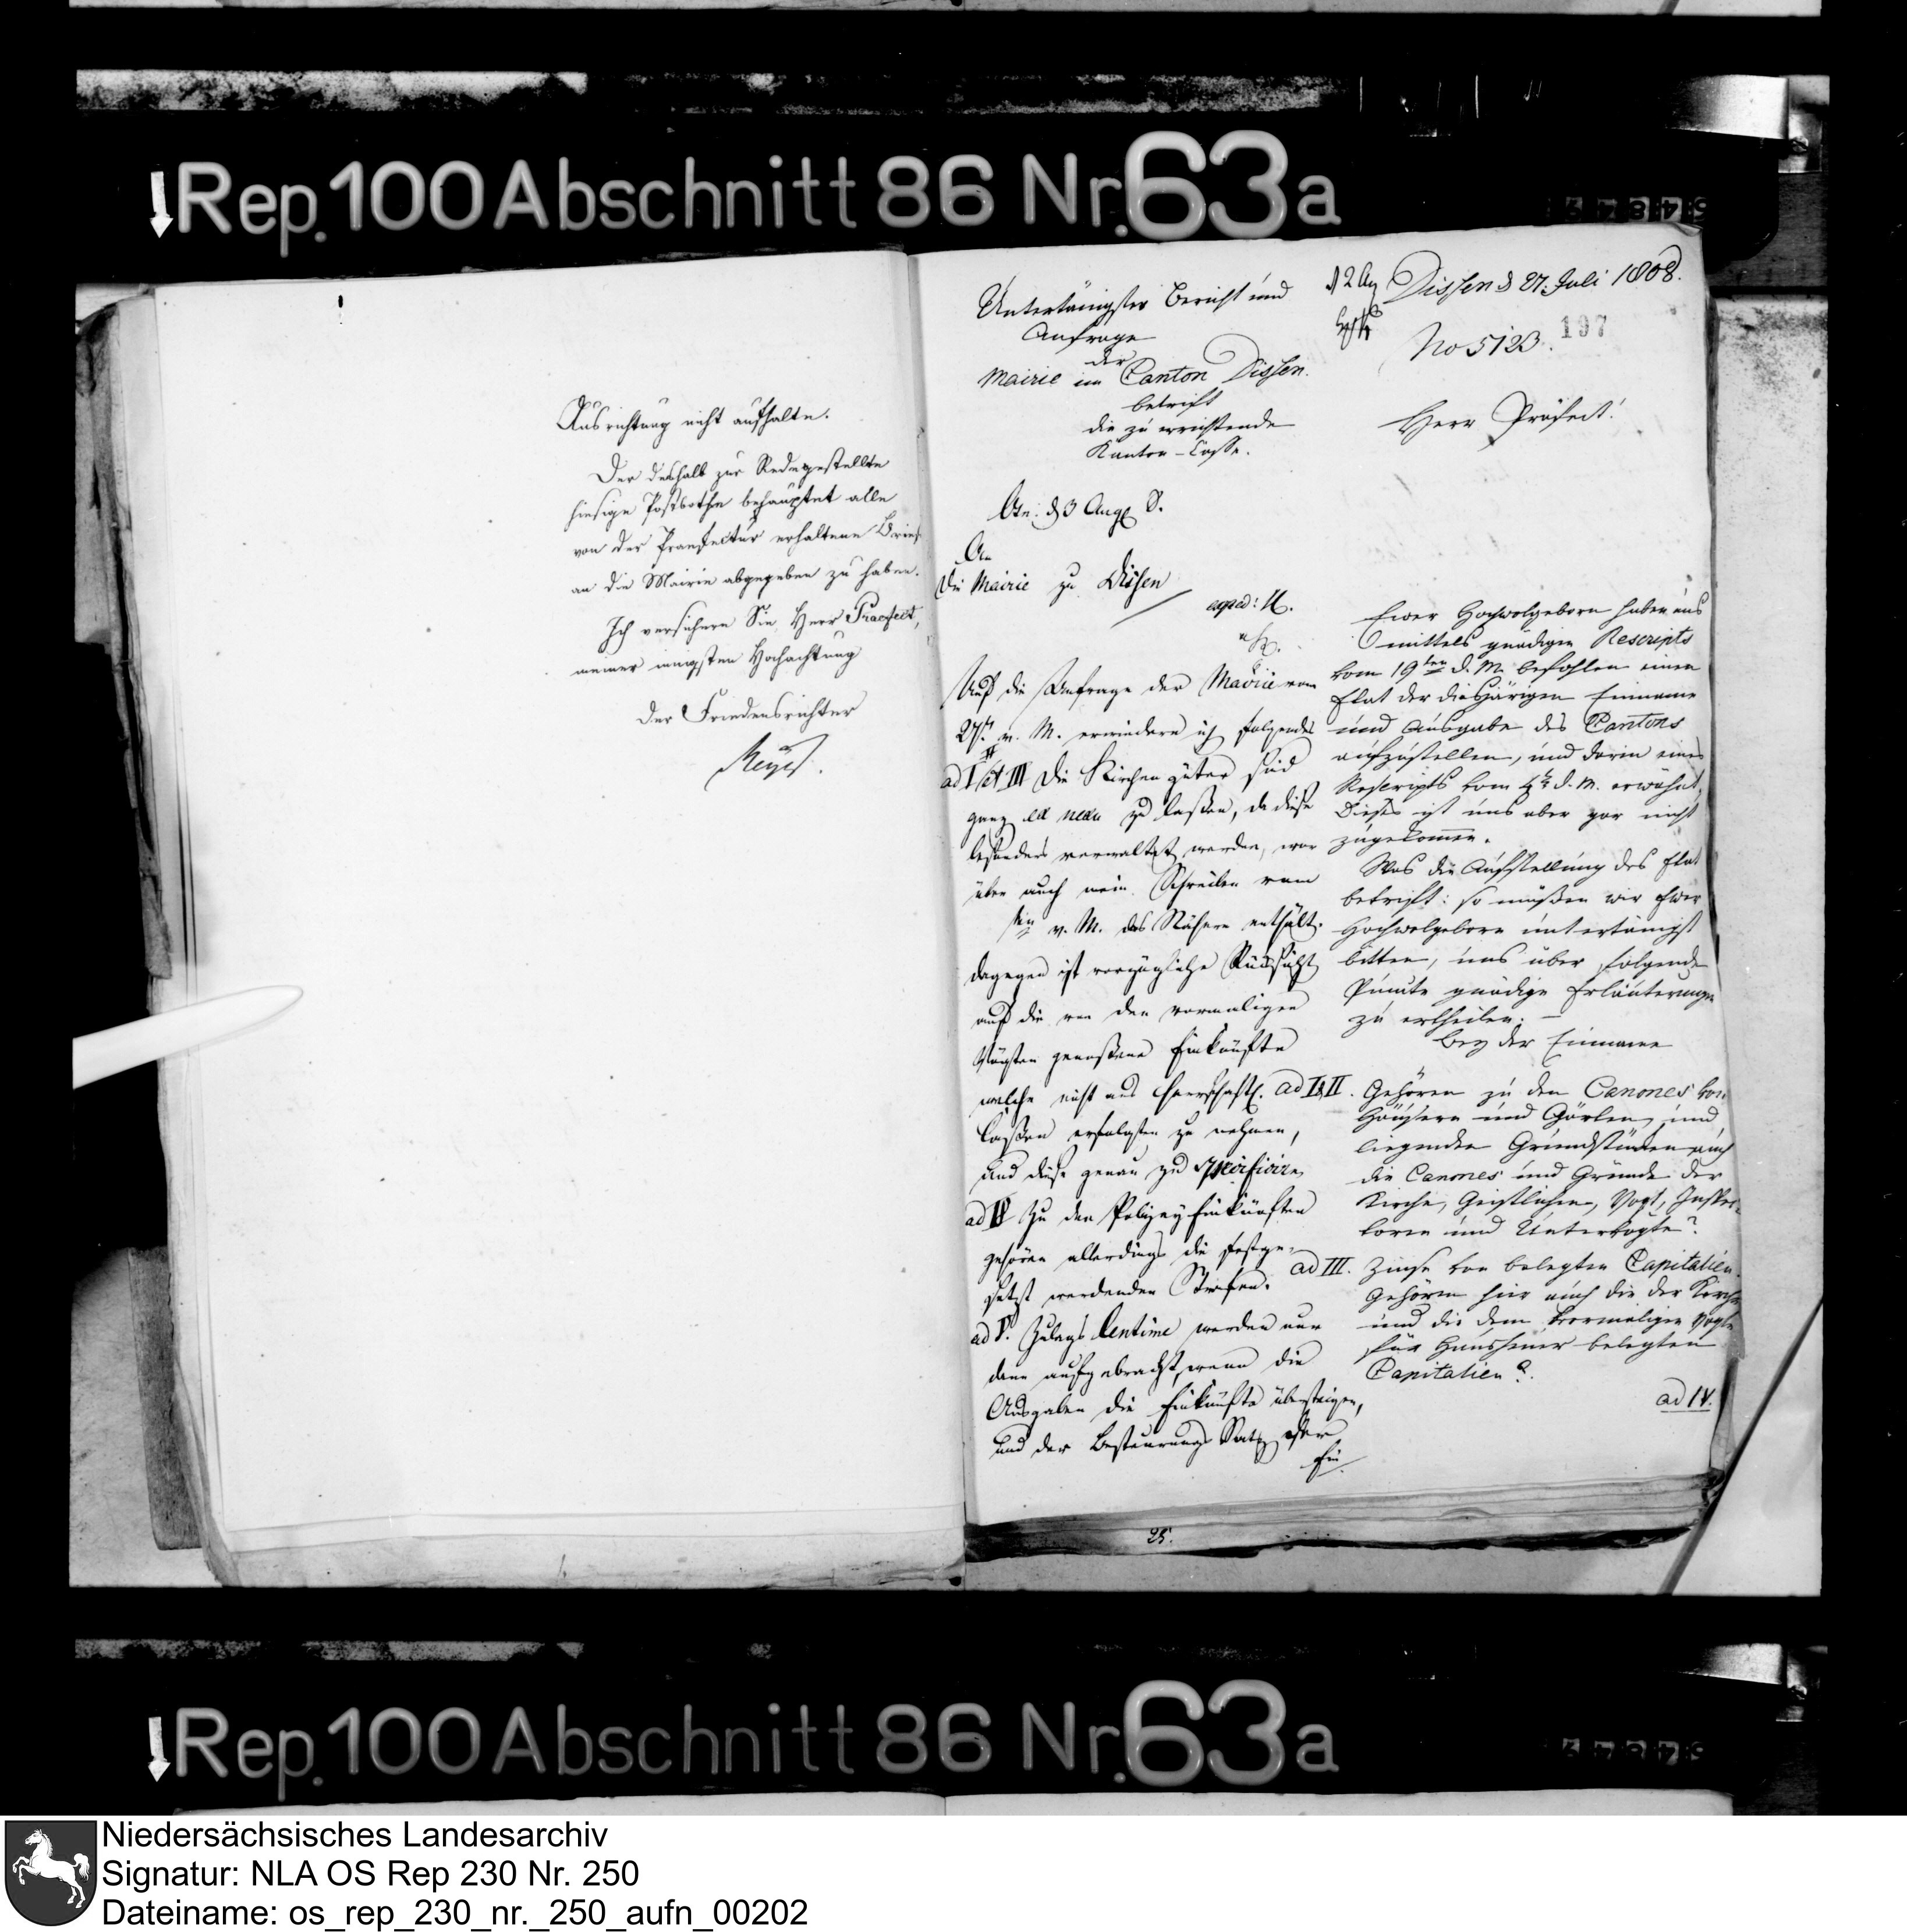 Rep. 100 Abschnitt 86 Nr. 63a
Ausrichtung nicht aufhalte.
Der deshalb zur Rede gestellte
hiesige Postbothe behauptet alle
von der Praefectur erhaltene Briefe
an die Mairie abgegeben zu haben.
Ich versichere Sie, Herr Praefect,
meiner innigsten Hochachtung
Der Friedensrichter
Meyer.
Untertänigster Bericht und
Anfrage
der
Mairie im Canton Dissen.
betrift
die zu errichtende
Kanton-Casse.
Dissen d 27. Juli 1808.
197
No 5123.
Herr Präfect!
d 3 Aug
An
die Mairie zu Dissen
exped:
Auf die Anfrage der Mairie vom
27. v. M. erwiedere ich folgendes
ad I, II et III Die Kirchengüter sind
ganz ex nexu zu lassen, da diese
besonders verwaltet werden, wor
über auch mein Schreiben vom
v. M. das Nähere enthält.
dagegen ist vorzügliche Rücksicht
auf die von den vormaligen
Vögten genossene Einkünfte
welche nicht aus herrschaftl.
Cassen erfolgten zu nehmen,
und diese genau zu specificiren
ad IV Zu den Polizey Einkünften
gehören allerdings die festge-
setzt werdenden Strafen.
ad V. Zulags Centime werden nur
dann aufgebracht, wenn die
Ausgaben die Einkünfte übersteigen,
und der Besteurungs Satz
Ewer Hochwolgeborn haben uns
mittels gnädigen Rescripts
vom 19ten d. M. befohlen einen
Etat der diesjärigen Einname
und Ausgabe des Cantons
aufzustellen, und darin eines
Rescripts vom 4ten d. M. erwähnt.
Dieses ist uns aber gar nicht
zugekommen.
Was die Aufstellung des Etat
betrift: so müßen wir Ewer
Hochwolgeborn untertänigst
bitten, uns über folgende
Puncte gnädige Erläuterungen
zu ertheilen. —
Bey der Einname
ad I, II. Gehören zu den Canones von
Häusern und Gärten, und
liegenden Grundstücken auch
die Canones und Gründe der
Kirche, Geistlichen, Vogt, Inspec-
toren und Untervögte?
ad III. Zinse von belegten Capitalien.
Gehören hier auch die der Kirche
und die dem vormaligen Vogte
für Haushüner belegten
Capitalien?
ad IV.
25.
Rep. 100 Abschnitt 86 Nr. 63a
Niedersächsisches Landesarchiv
Signatur: NLA OS Rep 230 Nr. 250
Dateiname: os_rep_230_nr._250_aufn_00202